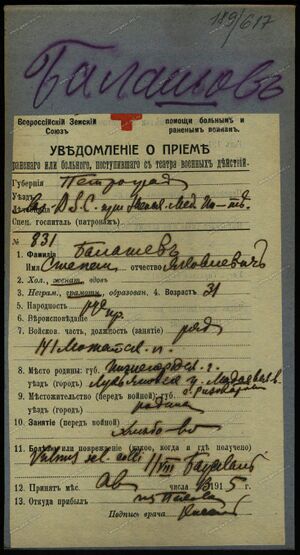 189/617
Балашовъ
Всероссійскій Земскій Союзъ помощи больнымъ и раненымъ воинамъ.
УВѢДОМЛЕНІЕ О ПРІЕМѢ
раненаго или больного, поступившаго съ театра военныхъ дѣйствій.
Губернія Петроград
Уѣздъ
Спец. госпиталь (патронажъ)
№ 831
1. Фамилія Балашевъ
Имя Степан отчество Яковлевичъ
2. Хол., женат., вдовъ
3. Неграм., грамотн., образован. 4. Возрастъ 31
5. Народность рус
6. Вѣроисповѣданіе пр.
7. Войсков. часть, должность (занятіе) ряд
141 Можайск. п.
8. Мѣсто родины: губ. Нижегородск. г.
уѣздъ (городъ) Лукьяновск у.
9. Мѣстожительство (передъ войной) губ.
уѣздъ (городъ) родина
10. Занятіе (передъ войной)
Хлѣбо-во
11. Болѣзнь или поврежденіе (какое, когда и гдѣ получено)
Vulnus scl.
12. Принятъ мѣс. Ав числа 13 1915 г.
13. Откуда прибылъ
Подпись врача